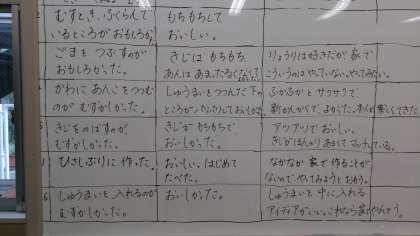 むすとき、ふくらんで
いるところがおもしろかった。
もちもちして
おいしい。
ごまを つぶすのが
おもしろかった。
きじは もちもち
あんは あまったるくなくて
りょうりは好きだが 家で
こういうのはやっていない。やってみたい。
かわに あんこをつつむ
のが むずかしかった。
しゅうまいをつつんだ 下の
ふかふかと サクサクで、
新かんかくで よかった。
きじをのばすのが
むずかしかった。
きじが もちもちで
おいしかった。
アツアツで おいしい。
ひさしぶりに 作った。
おいしい。はじめて
たべた。
なかなか 家で 作ることが
ないので やってみようとおもう。
6
しゅうまいを 入れるのが
むずかしかった。
おいしかった。
しゅうまいを 中に 入れる
アイディアがいい。これなら家でやれそう。